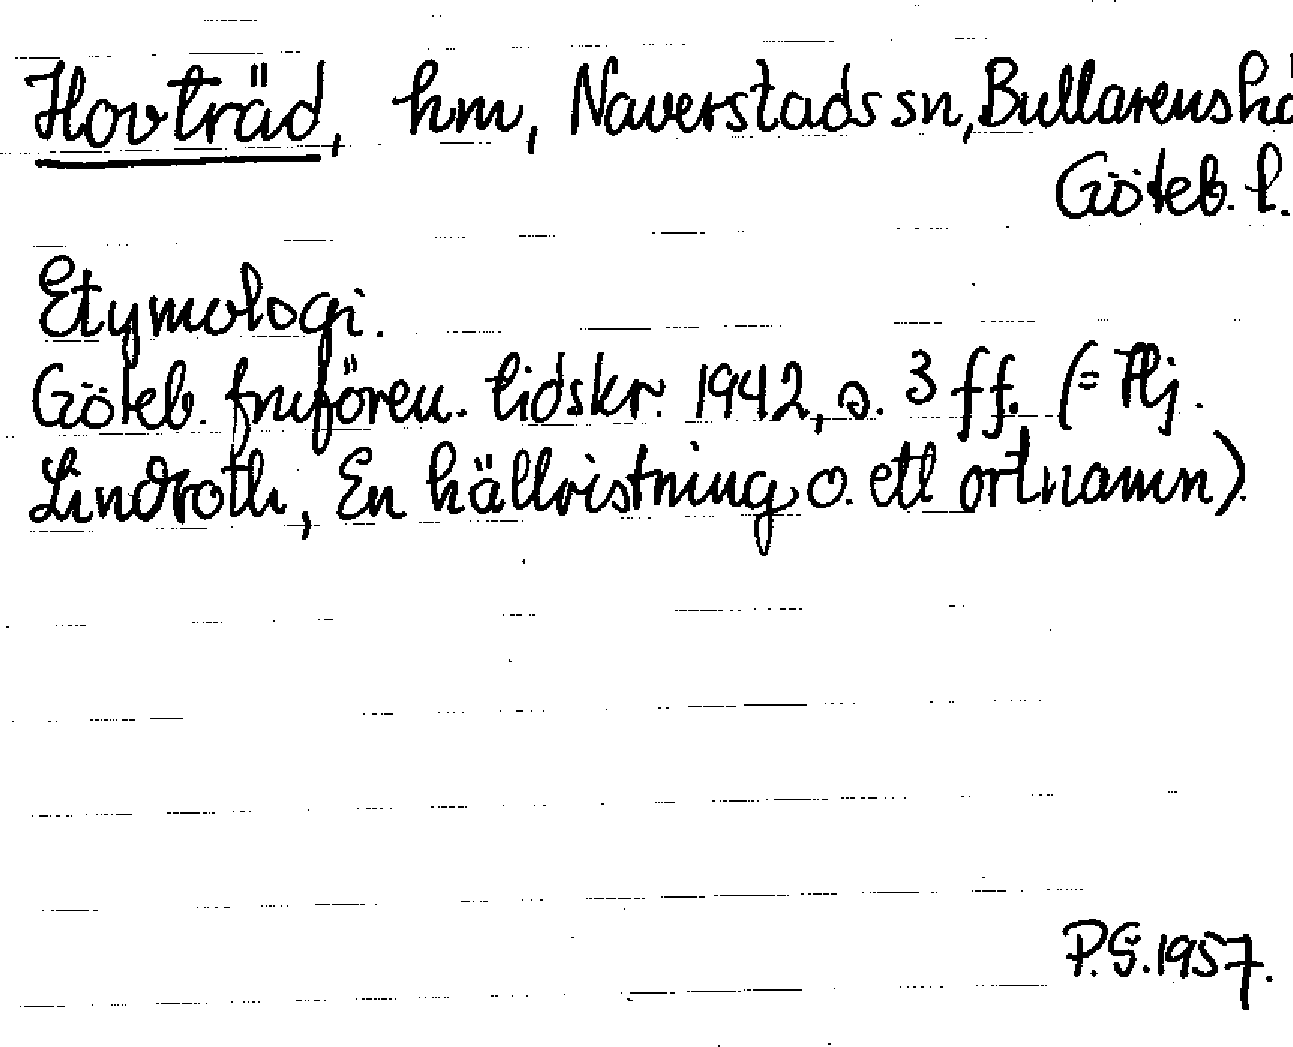 Hovträd, hm, Naverstads sn, Bullarens hd
Göteb. l.
Etymologi.
Göteb. fruforen. tidskr. 1942, s. 3 ff. (= Hj.
Lindroth, En hällristning o. ett ortnamn).
P.G. 1957.